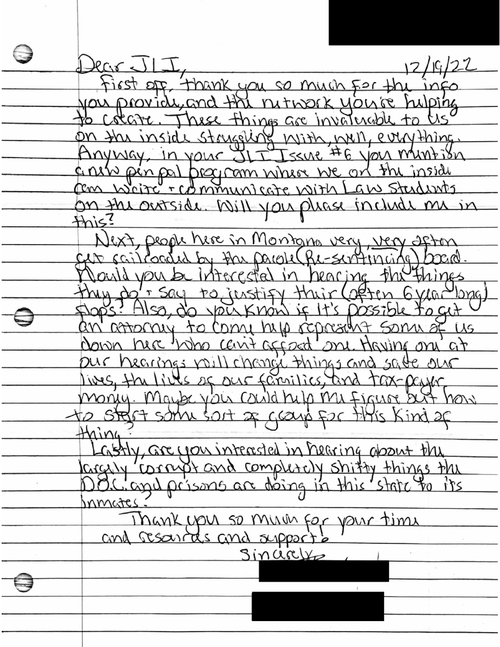 Dear JLI, 12/19/22
First off, thank you so much for the info
you provide, and the network you're helping
to create. These things are invaluable to us
on the inside struggling with, well, everything.
Anyway, in your JLI Issue #6 you mention
a new penpal program where we on the inside
can write + communicate with Law Students
on the outside. Will you please include me in
this?
Next, people here in Montana very, very often
get railroaded by the parole (Re-sentincing) board.
Would you be interested in hearing the things
they do + say to justify their (often 6 year long)
flops? Also, do you know if it's possible to get
an attorney to come help represent some of us
down here who can't afford one. Having one at
our hearings will change things and save our
lives, the lives of our families, and tax-payer
money. Maybe you could help me figure out how
to start some sort of group for this kind of
thing?
Lastly, are you interested in hearing about the
largely corrupt and completely shitty things the
D.O.C. and prisons are doing in this state to its
inmates.
Thank you so much for your time
and resources and support!
Sincerely,